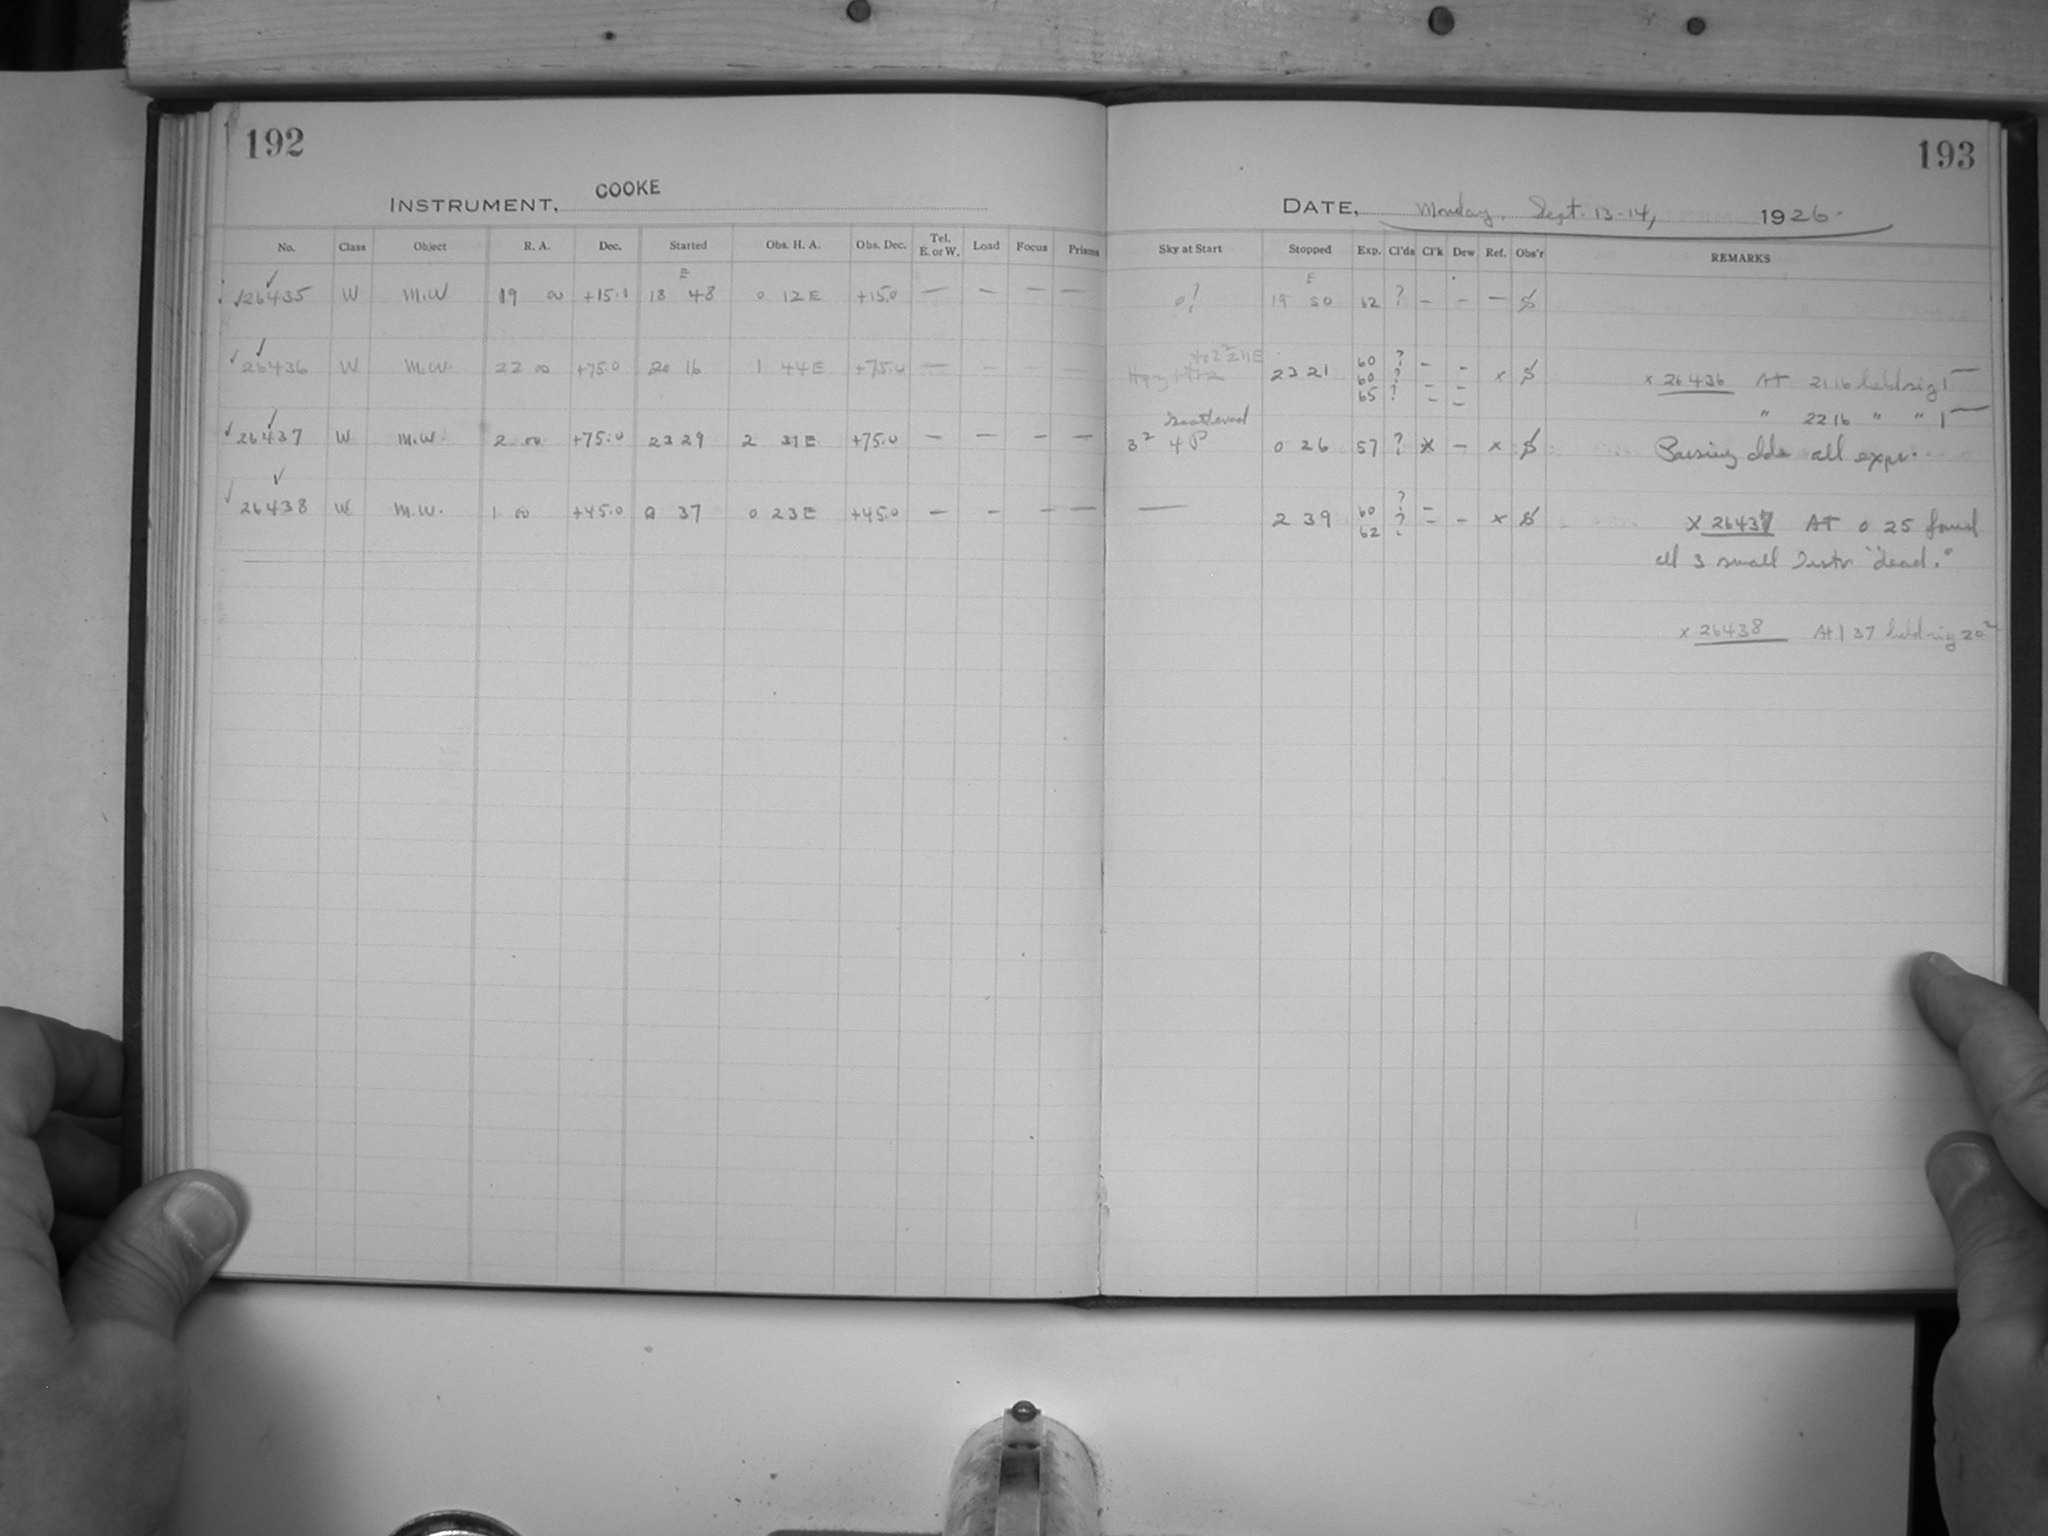 192
193
INSTRUMENT, COOKE
DATE, Monday, Sept. 13-14, 1926.
No. Class Object R. A. Dec. Started Obs. H. A. Obs. Dec. Tel. E. or W. Load Focus Prisms Sky at Start Stopped Exp. Cl'ds Cl'k Dew Ref. Obs'r REMARKS
E E
✓26435 W M.W 19 00 +15.0 18 48 0 12 E +15.0 — — — — 0? 19 50 62 ? – – –
✓26436 W M.W. 22 00 +75.0 20 16 1 44 E +75.0 — – – – 23 21 60 ? – – x
60 ?
65 ? – –
x 26436 At 21 16
" 22 16 " "
✓26437 W M.W. 2 00 +75.0 23 29 2 31 E +75.0 – – – – 3² 4 P 0 26 57 ? x – x
Passing clds all expr.
✓26438 W M.W. 1 00 +45.0 0 37 0 23 E +45.0 – – – – — 2 39 60 ? – – x
62 ? –
x 26437 At 0 25 found
all 3 small Instr "dead."
x 26438 At 1 37